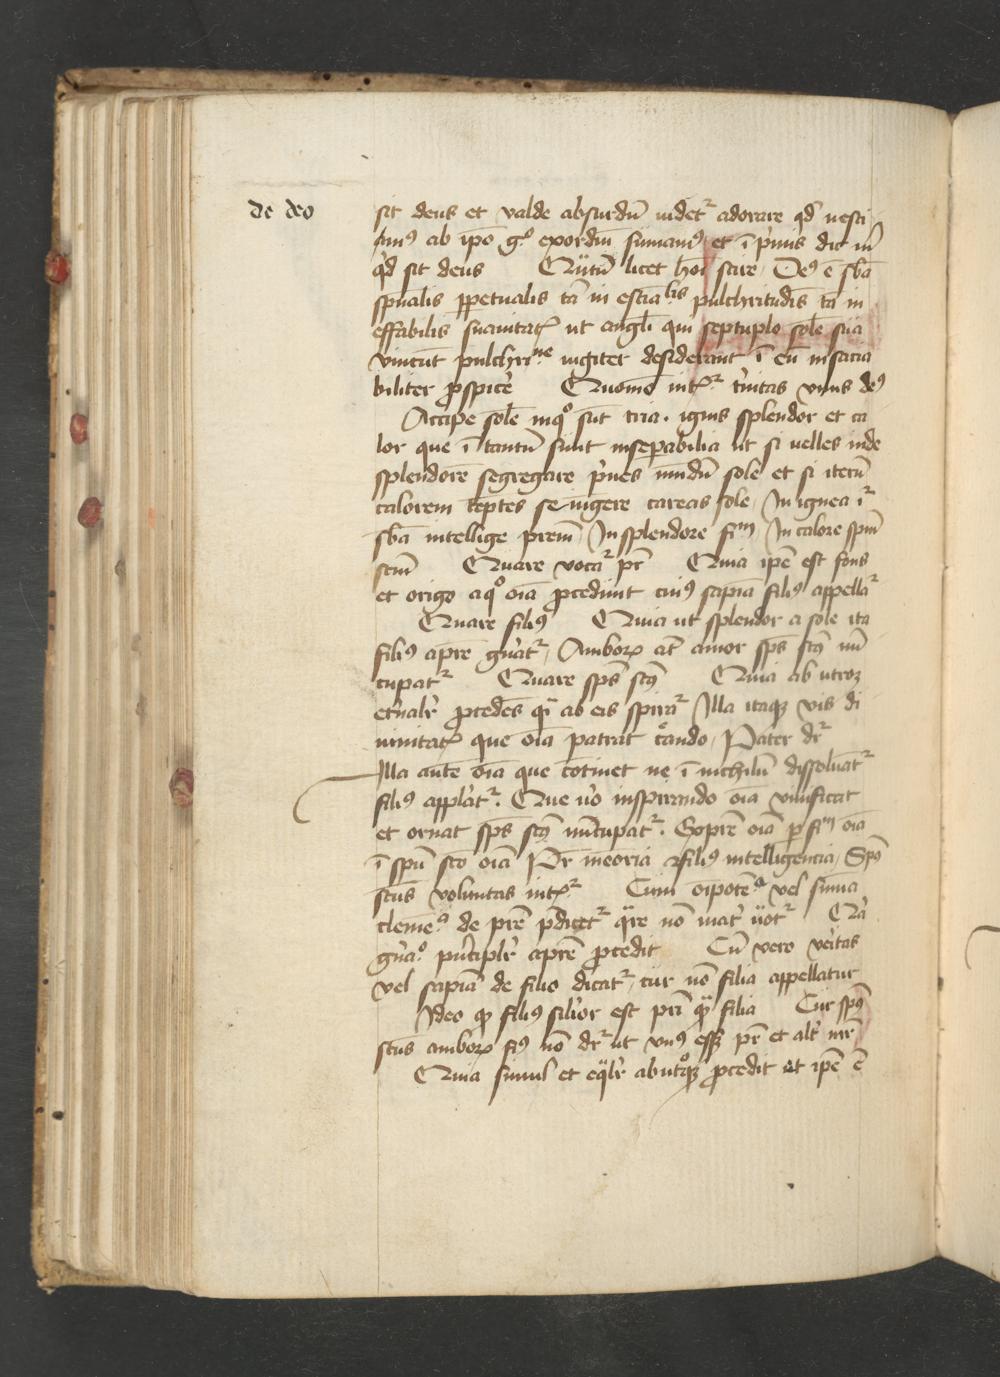 de deo
sit deus et valde absurdū uidet᷑ adorare qd̄ nesci
mꝰ ab ip̄o gº exordiū sumamꝰ et ī p̾mis dic m̄
qͥd sit deus Qͣntū licet ho͞i scire Deꝰ ē sb̄a
sp̄ualis ꝑpetualis tā in estīabͥlis pulchritudīs tā in
effabilis suauitatꝭ ut angl̄i qui septuplo sole͞ sua
vincūt pulchrine iugiter desiderant ī eū insacia
biliter ꝓspice͞ Quomō int᷑ t̾nitas vnus deꝰ
Accipe sole͞ inqͦ sūt tria. ignis splendor et ca
lor que ī tantū sunt inseparabilia ut si uelles inde
splendorē segregare p̾ues mūdū sole et si iterū
calorem teptes seiūgere careas sole In ignea i᷑
sb̄a intellige prem̄ In splendore fim̄ In calore spm̄
scm̄ Quare voca᷑ pr̄ Quia ip̄e est fons
et origo aqͦ oīa ꝓcedunt cuiꝰ sapīa filiꝰ appella᷑
Quare filiꝰ Quia ut splendor a sole ita
filiꝰ apre͞ gn̄at᷑ Amboꝝ at̄ amor sp̄s scūs nū
cupat᷑ Quare sp̄s scūs Quia ab utroqꝫ
et̾nalr̄ ꝓcedēs qͣi ab eis spira᷑ Illa itaqꝫ vis di
uinitatꝭ que oīa patrat c̾ando Pater dr̄
Illa aute͞ oīa que cōtinet ne ī nichilū dissoluat᷑
filiꝰ applāt᷑. Que u̾o inspirando oīa viuificat
et ornat sp̄s scūs nūcupat᷑. Eopre͞ oīa ꝑ fim̄ oīa
ī spū sco͞ oīa Pr̄ meoria filiꝰ intelligencia Spūs
scūs voluntas int᷑ Cum oipotēᵃ vel suma
clemēᵃ de pre͞ p̄dicet᷑ qͣre nō mat̾ uo᷑ Qͥa
gn̄aº pͥncipalr̄ apre͞ ꝓcedit Cū vero veritas
vel sapīa de filio dicat᷑ cur nō filia appellatur
Ideo qꝫ filiꝰ sil̾ior est pri͞ qͣ filia Cur spūs
scūs amboꝝ fiꝰ nō dr̄ ut vnꝰ essꝫ pr̄ et alt̾ mr̄
Quia simul et eqͣlr̄ abutͦqꝫ ꝓcedit et ip̄e ē